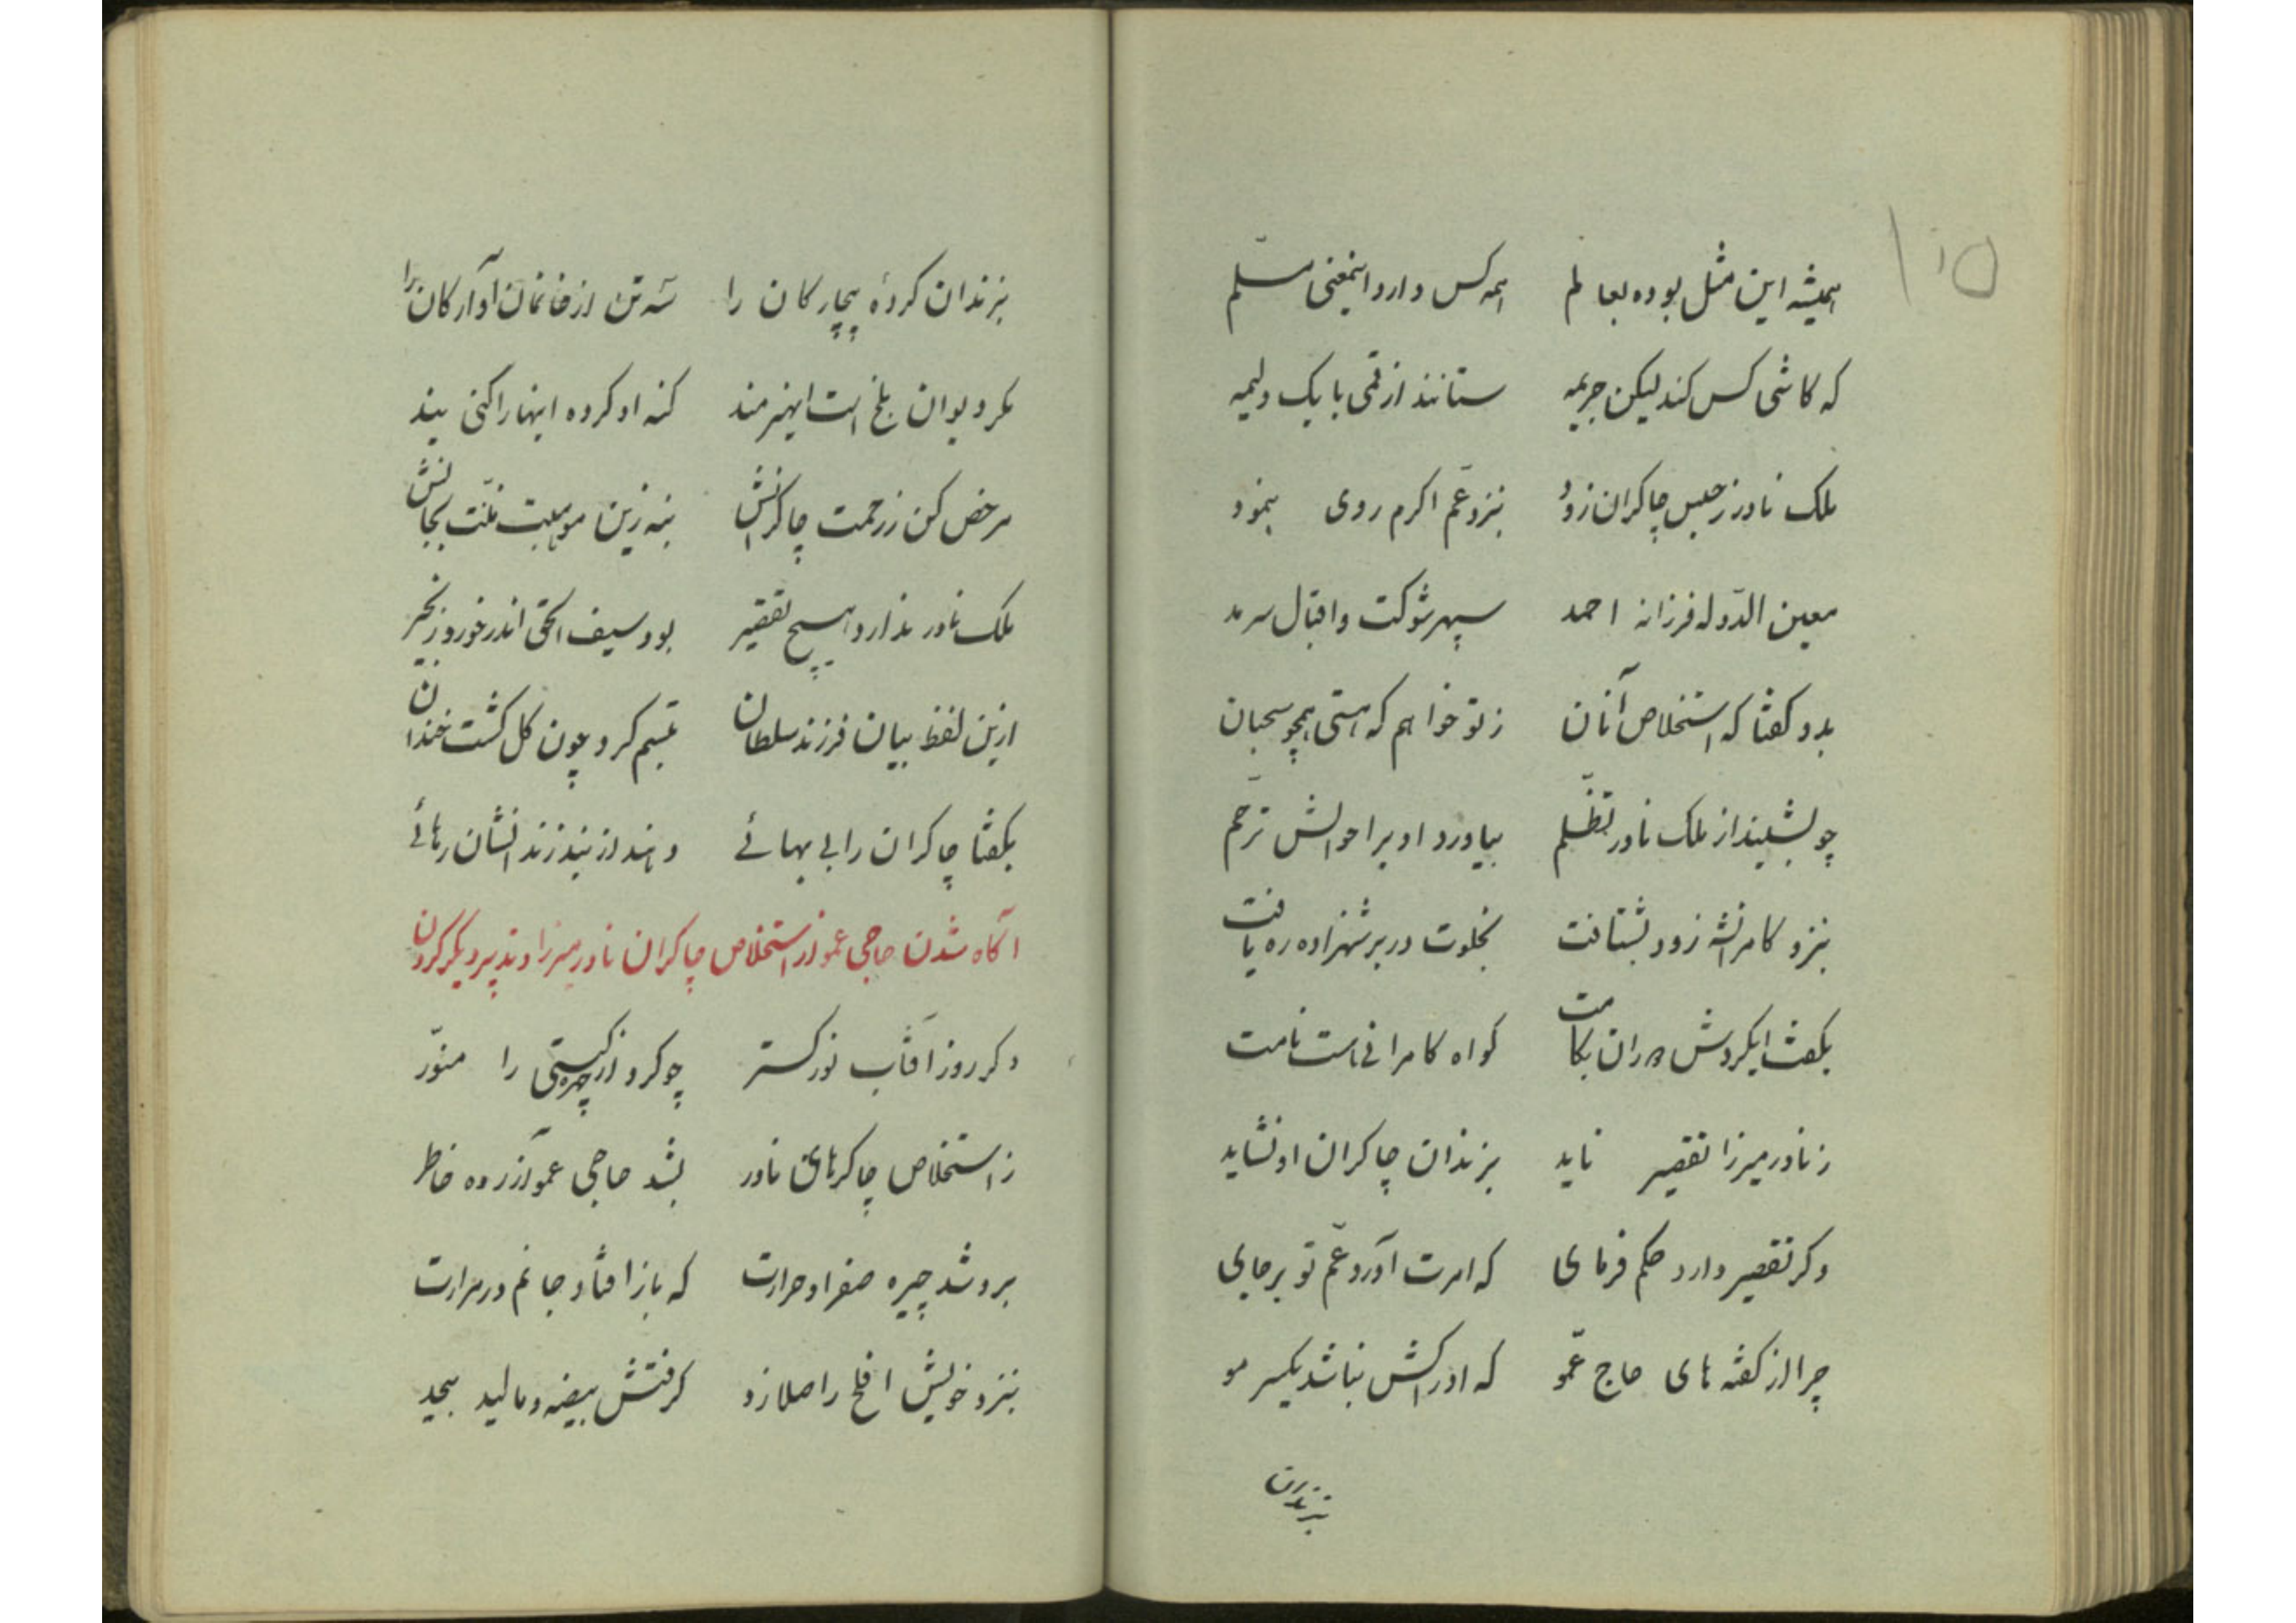 ۱۰۵
همیشه این مثل بوده بعالم همه کس دارد اینمعنی مسلّم
که کاشی کس کند لیکن جریمه ستانند از قمی با یک ولیمه
ملک نادر ز حبس چاکران زود بنزد عّم اکرم روی بنمود
معین الدّوله فرزانه احمد سپهر شوکت و اقبال سرمد
بدو گفتا که استخلاص آنان ز تو خواهم که هستی همچو سحبان
چو بشنید از ملک نادر تظّلم بیاورد او بر احوالش ترّحم
بنزد کامرانشه زود بشتافت بخلوت در بر شهزاده ره یافت
بگفت ایگردش دوران بکامت گواه کامرانی است نامت
ز نادر میرزا تقصیر ناید بزندان چاکران او نشاید
وگر تقصیر دارد حکم فرمای که امرت آورد عّم تو بر جای
چرا از گفته های حاج عمّو که ادراکش نباشد یکسر مو
بزندان
بزندان کردهٔ بیچارگان را سه تن از خانمان آوارگان را
مگر دیوان بلخ است ایهنرمند گنه او کرده اینها را کنی بند
مرخص کن ز زحمت چاکرانش بنه زین موهبت منّت بجانش
ملک نادر ندارد هیچ تقصیر بود سیف الحق اندر خورد زنجیر
ازین لفظ بیان فرزند سلطان تبسم کرد چون گل گشت خندان
بگفتا چاکران را بی بهائے دهند از بند زندانشان رهائے
آگاه شدن حاجی عمو از استخلاص چاکران نادر میرزا و تدبیر دیگر کردن
دگر روز آفتاب نور گستر چو کرد از چهره گیتی را منوّر
ز استخلاص چاکرهای نادر بشد حاجی عمو آزرده خاطر
برو شد چیره صفرا و حرارت که باز افتاد جانم در مرارت
بنزد خویش افلح را صلا زد گرفتش بیضه و مالید بیحد